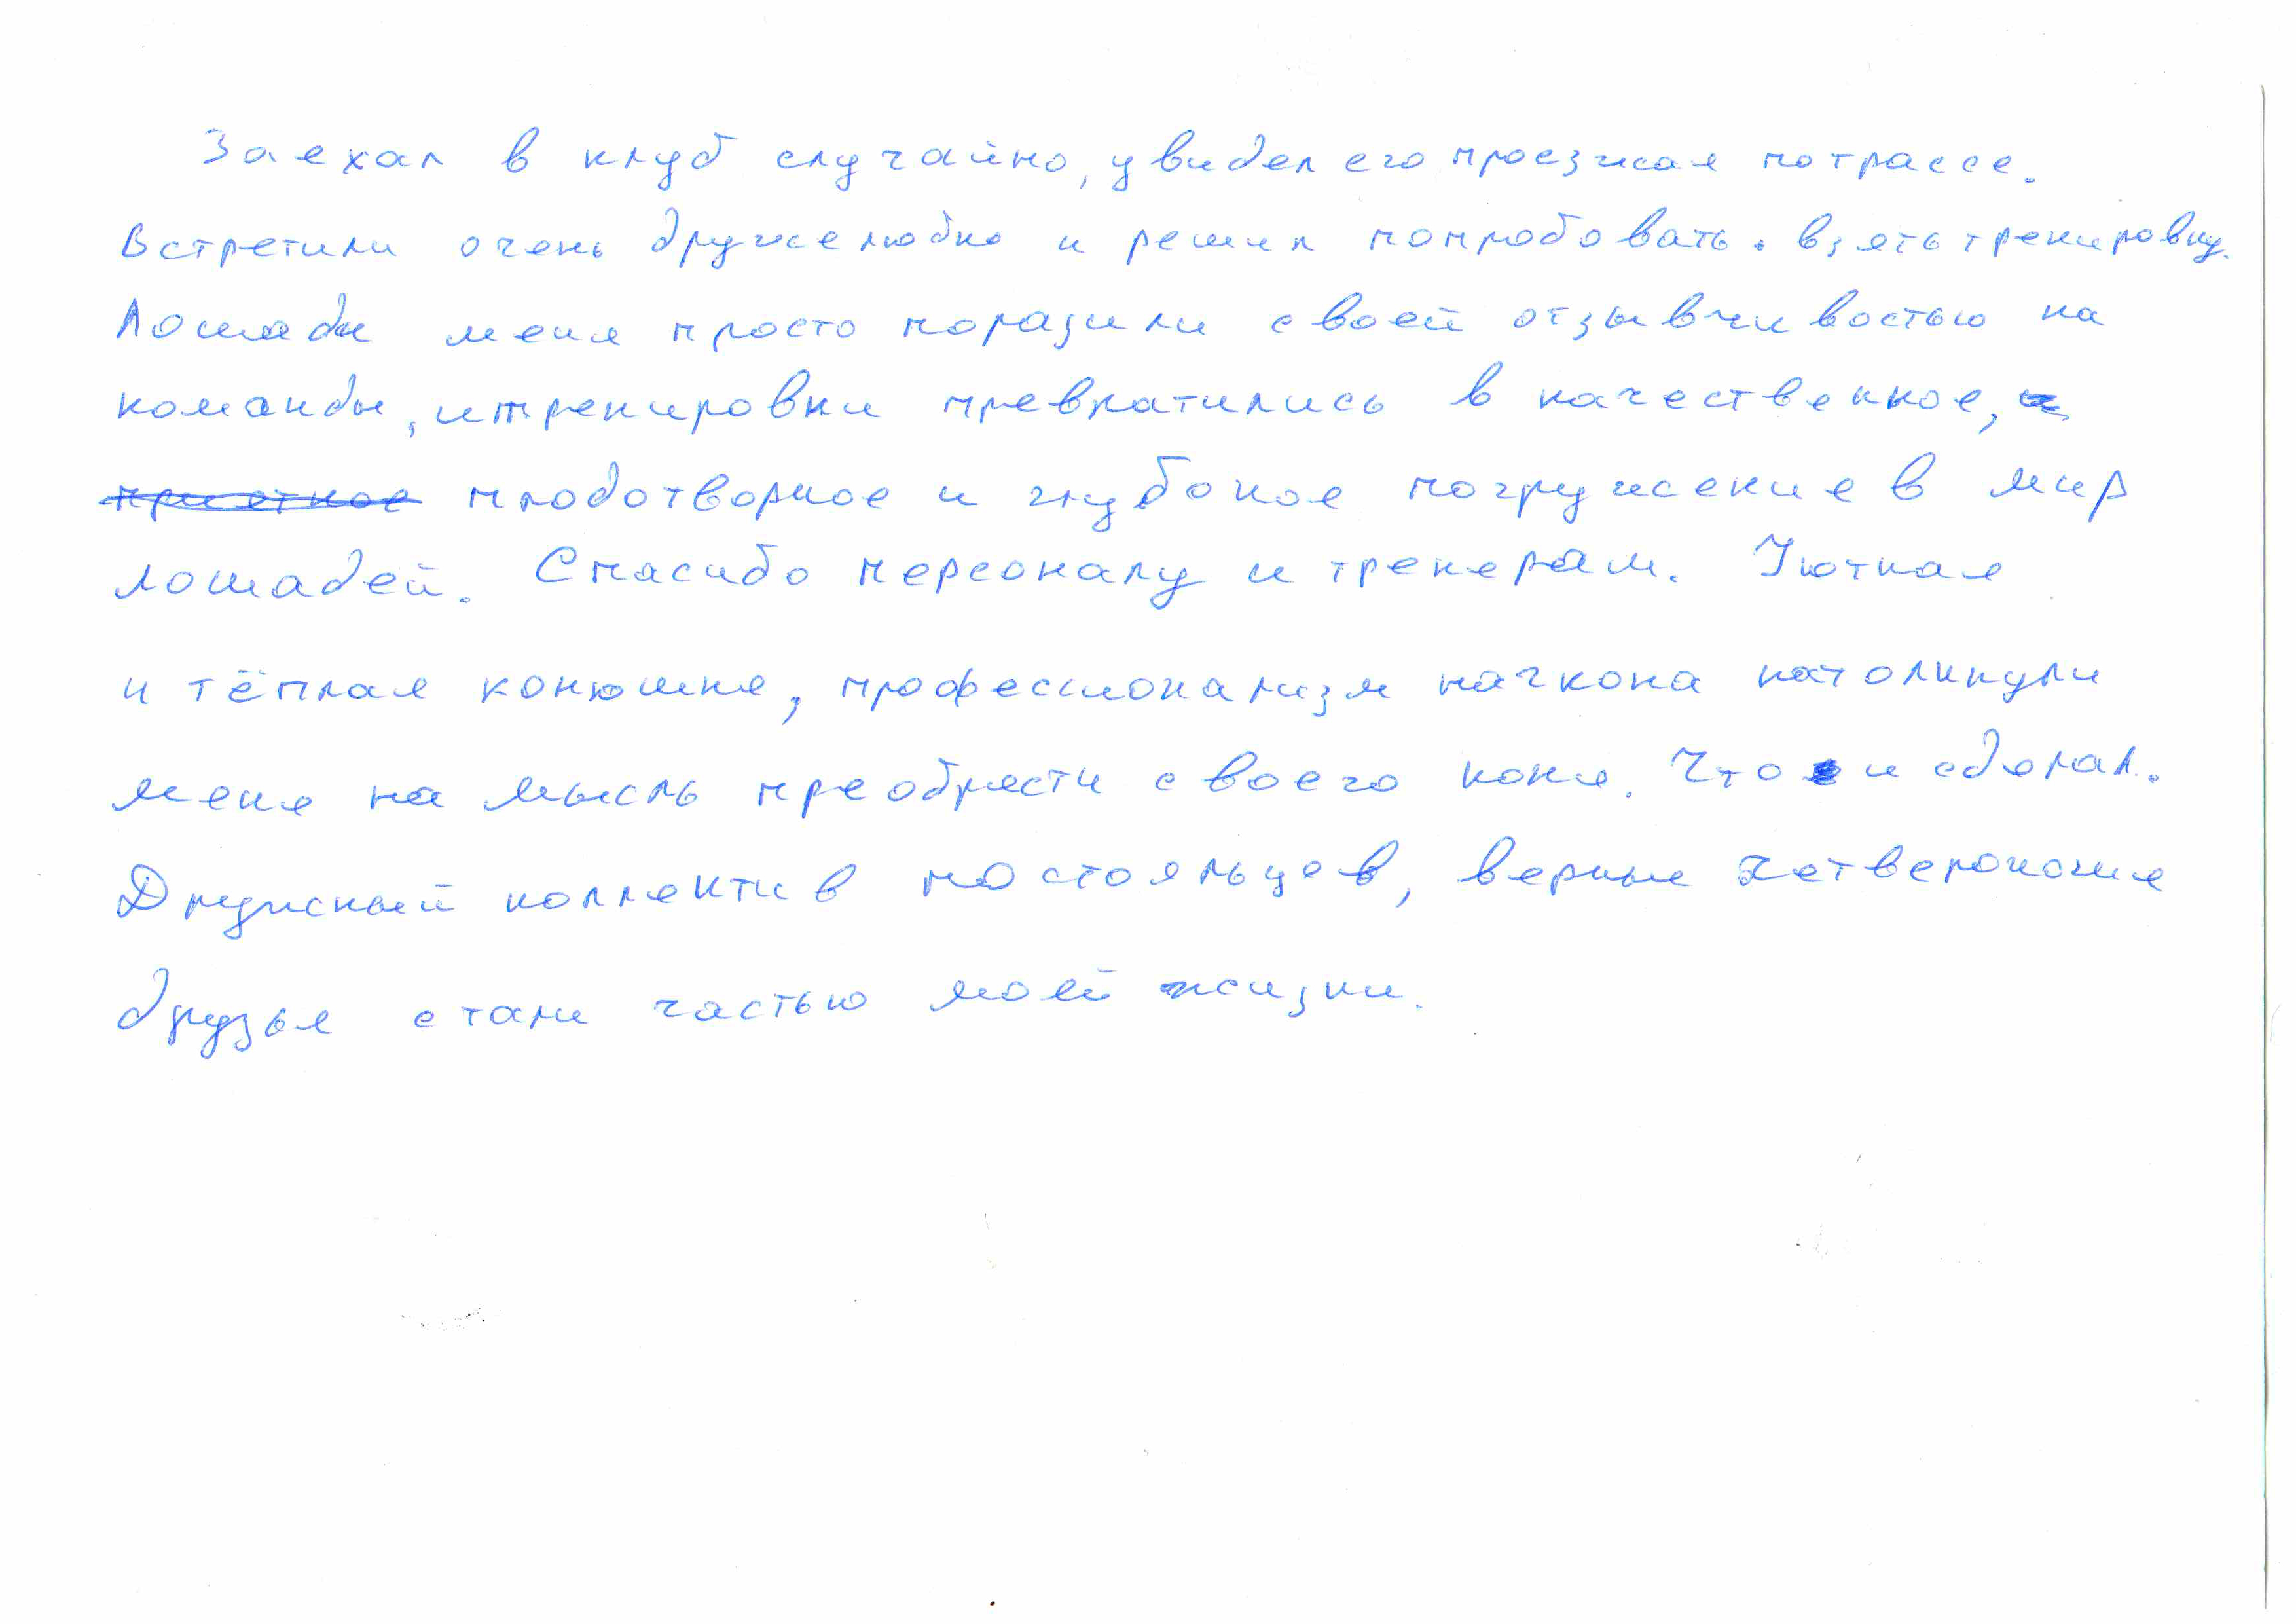 Заехал в клуб случайно, увидел его проезжая по трассе.
Встретили очень дружелюбно и решил попробовать. взять тренировку.
Лошади меня просто поразили своей отзывчивостью на
команды, и тренировки превратились в качественное,
приятное плодотворное и глубокое погружение в мир
лошадей. Спасибо персоналу и тренерам. Уютная
и тёплая конюшня, профессионализм начкона натолкнули
меня на мысль преобрести своего коня. Что и сделал.
Дружный коллектив постояльцев, верные четвероногие
друзья стали частью моей жизни.